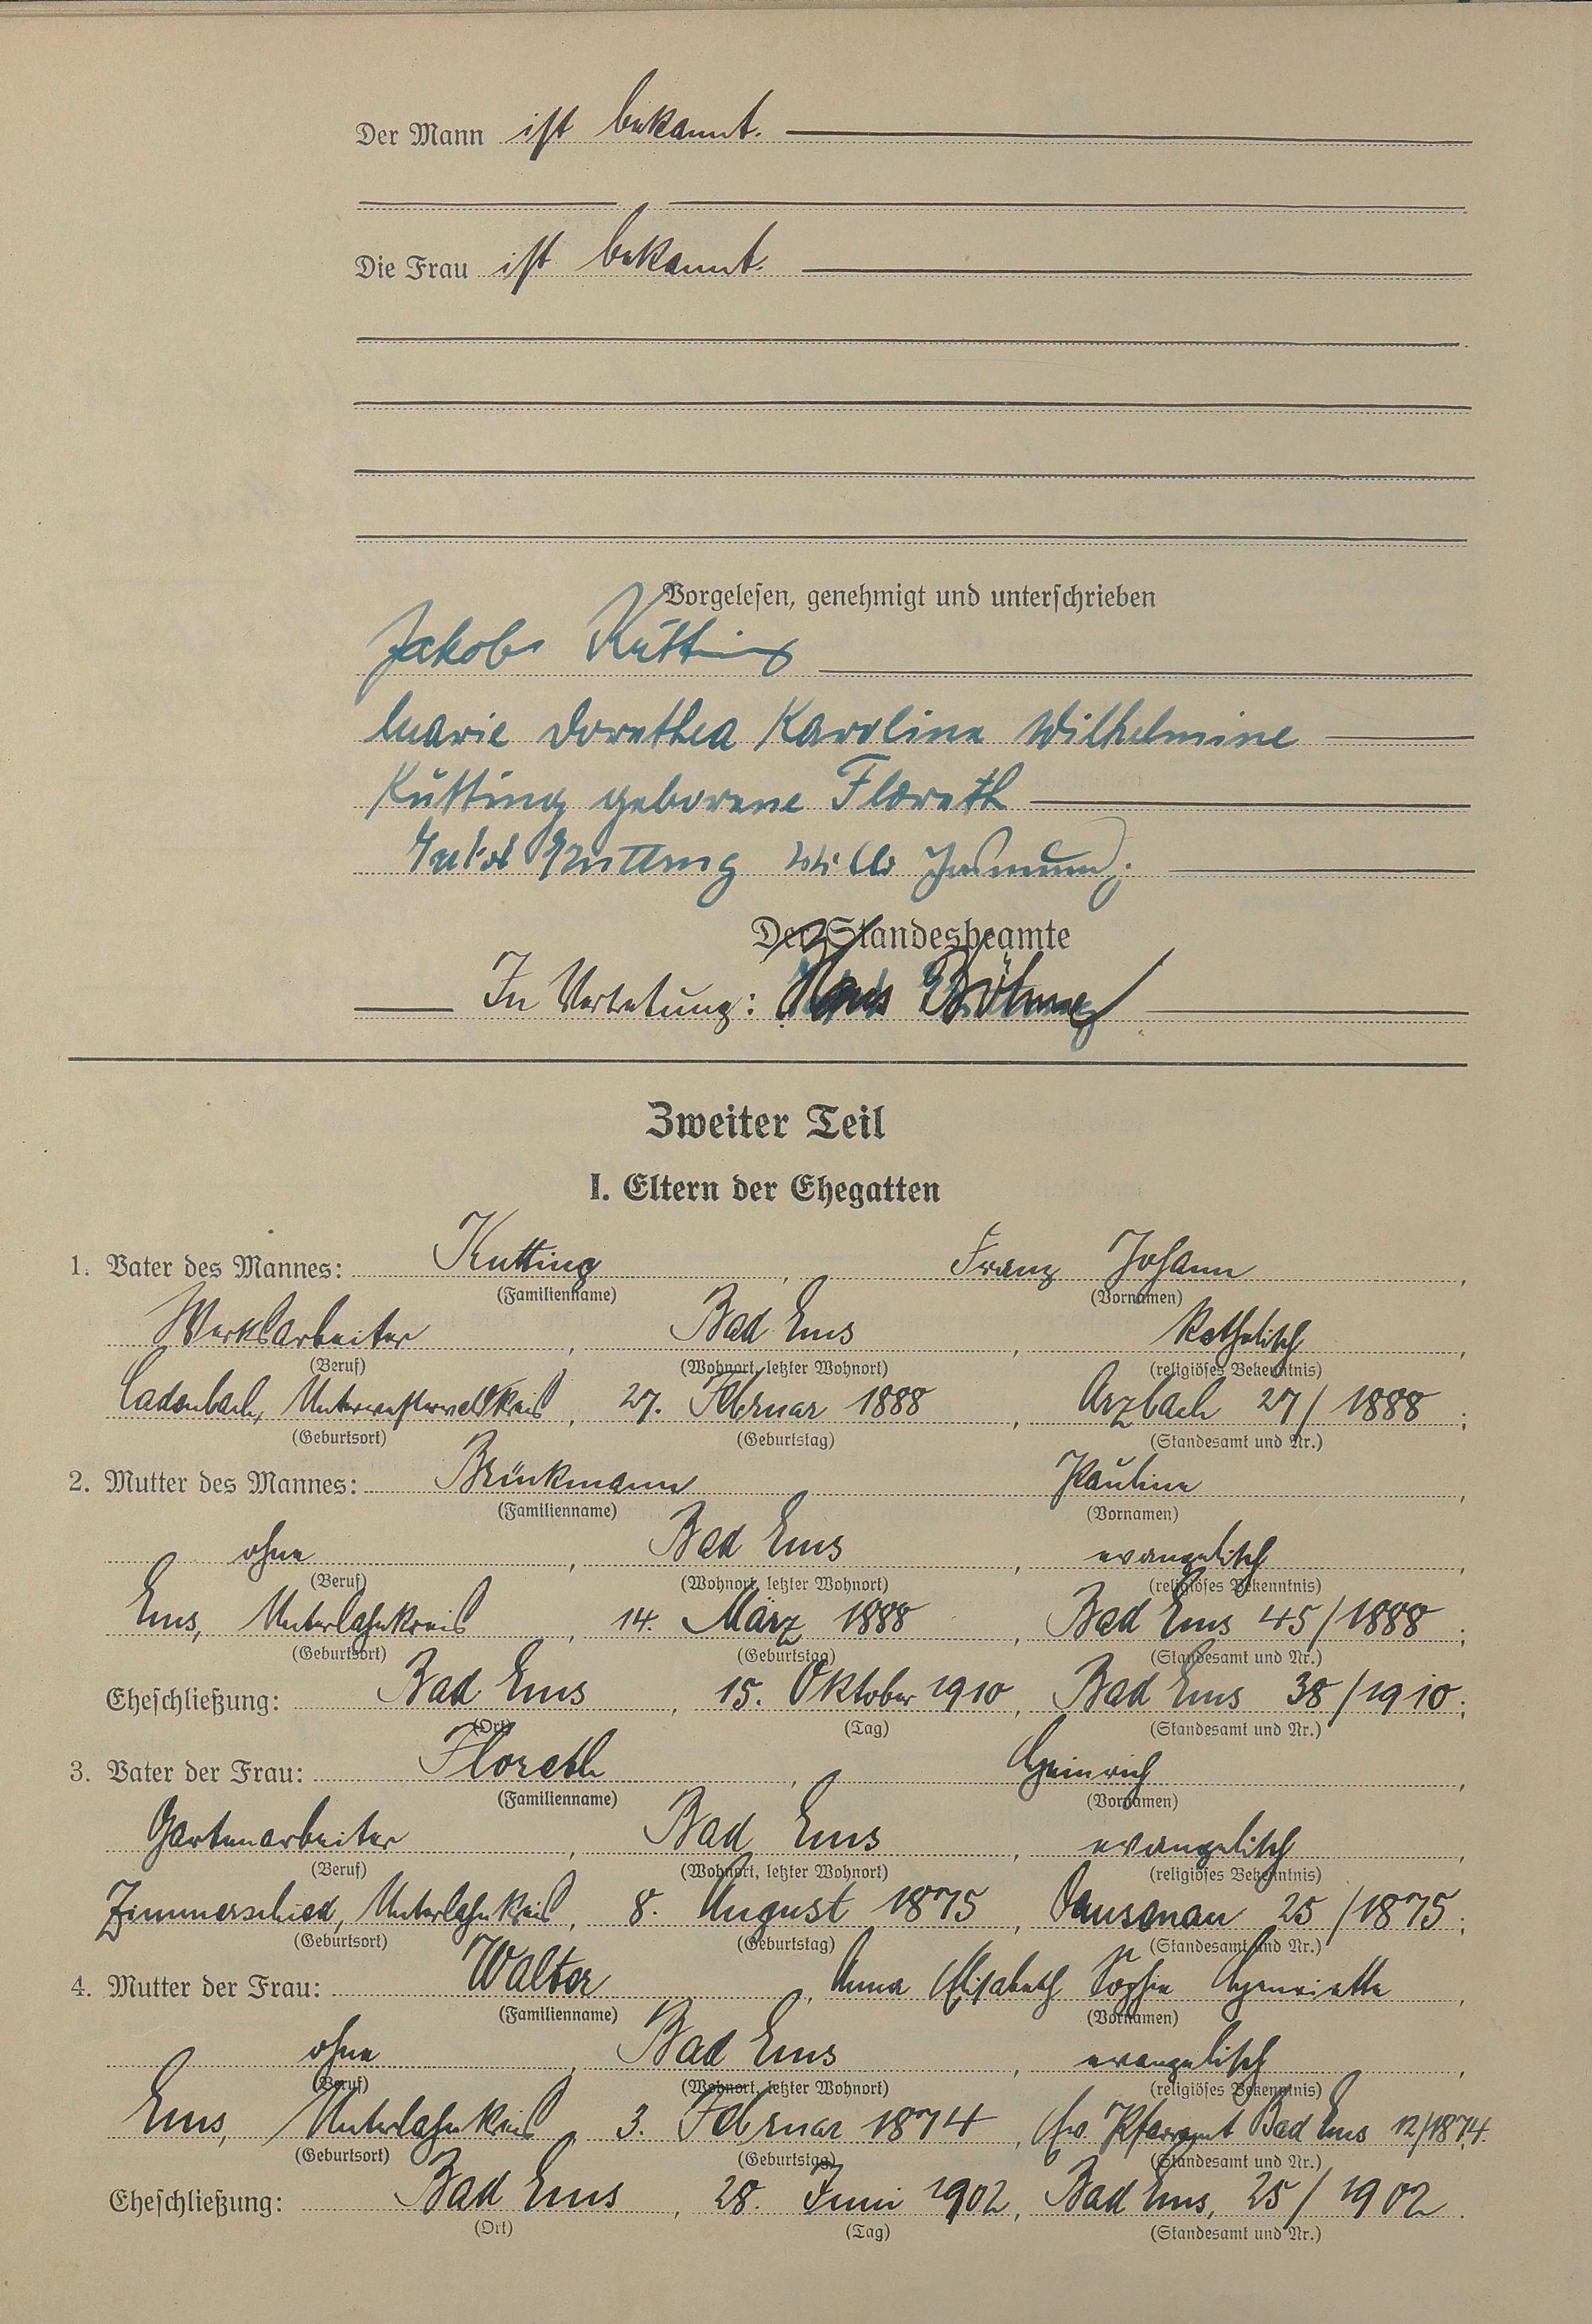 Der Mann ist bekannt.
Die Frau ist bekannt.
Vorgelesen, genehmigt und unterschrieben
Jakob Kutting
Marie Dorothea Karoline Wilhelmine
Kutting geborene Floreth
Kutting Willi
Der Standesbeamte
In Vertretung: Hans Böhme
Zweiter Teil
I. Eltern der Ehegatten
1. Vater des Mannes: Kutting, Franz Johann,
(Familienname) (Vornamen)
Werksarbeiter, Bad Ems, katholisch,
(Beruf) (Wohnort, letzter Wohnort) (religiöses Bekenntnis)
Cadenbach, Unterwesterwaldkreis, 27. Februar 1888, Arzbach 27/1888;
(Geburtsort) (Geburtstag) (Standesamt und Nr.)
2. Mutter des Mannes: Brinkmann Pauline,
(Familienname) (Vornamen)
ohne, Bad Ems, evangelisch,
(Beruf) (Wohnort, letzter Wohnort) (religiöses Bekenntnis)
Ems, Unterlahnkreis, 14. März 1888, Bad Ems 45/1888;
(Geburtsort) (Geburtstag) (Standesamt und Nr.)
Eheschließung: Bad Ems, 15. Oktober 1910, Bad Ems 38/1910;
(Ort) (Tag) (Standesamt und Nr.)
3. Vater der Frau: Floreth, Heinrich,
(Familienname) (Vornamen)
Gartenarbeiter, Bad Ems, evangelisch,
(Beruf) (Wohnort, letzter Wohnort) (religiöses Bekenntnis)
Zimmerschied, Unterlahnkreis, 8. August 1875, Dausenau 25/1875;
(Geburtsort) (Geburtstag) (Standesamt und Nr.)
4. Mutter der Frau: Walter, Anna Elisabeth Sophie Henriette,
(Familienname) (Vornamen)
ohne, Bad Ems, evangelisch,
(Beruf) (Wohnort, letzter Wohnort) (religiöses Bekenntnis)
Ems, Unterlahnkreis, 3. Februar 1874, Ev. Pfarramt Bad Ems 12/1874.
(Geburtsort) (Geburtstag) (Standesamt und Nr.)
Eheschließung: Bad Ems, 28. Juni 1902, Bad Ems, 25/1902.
(Ort) (Tag) (Standesamt und Nr.)